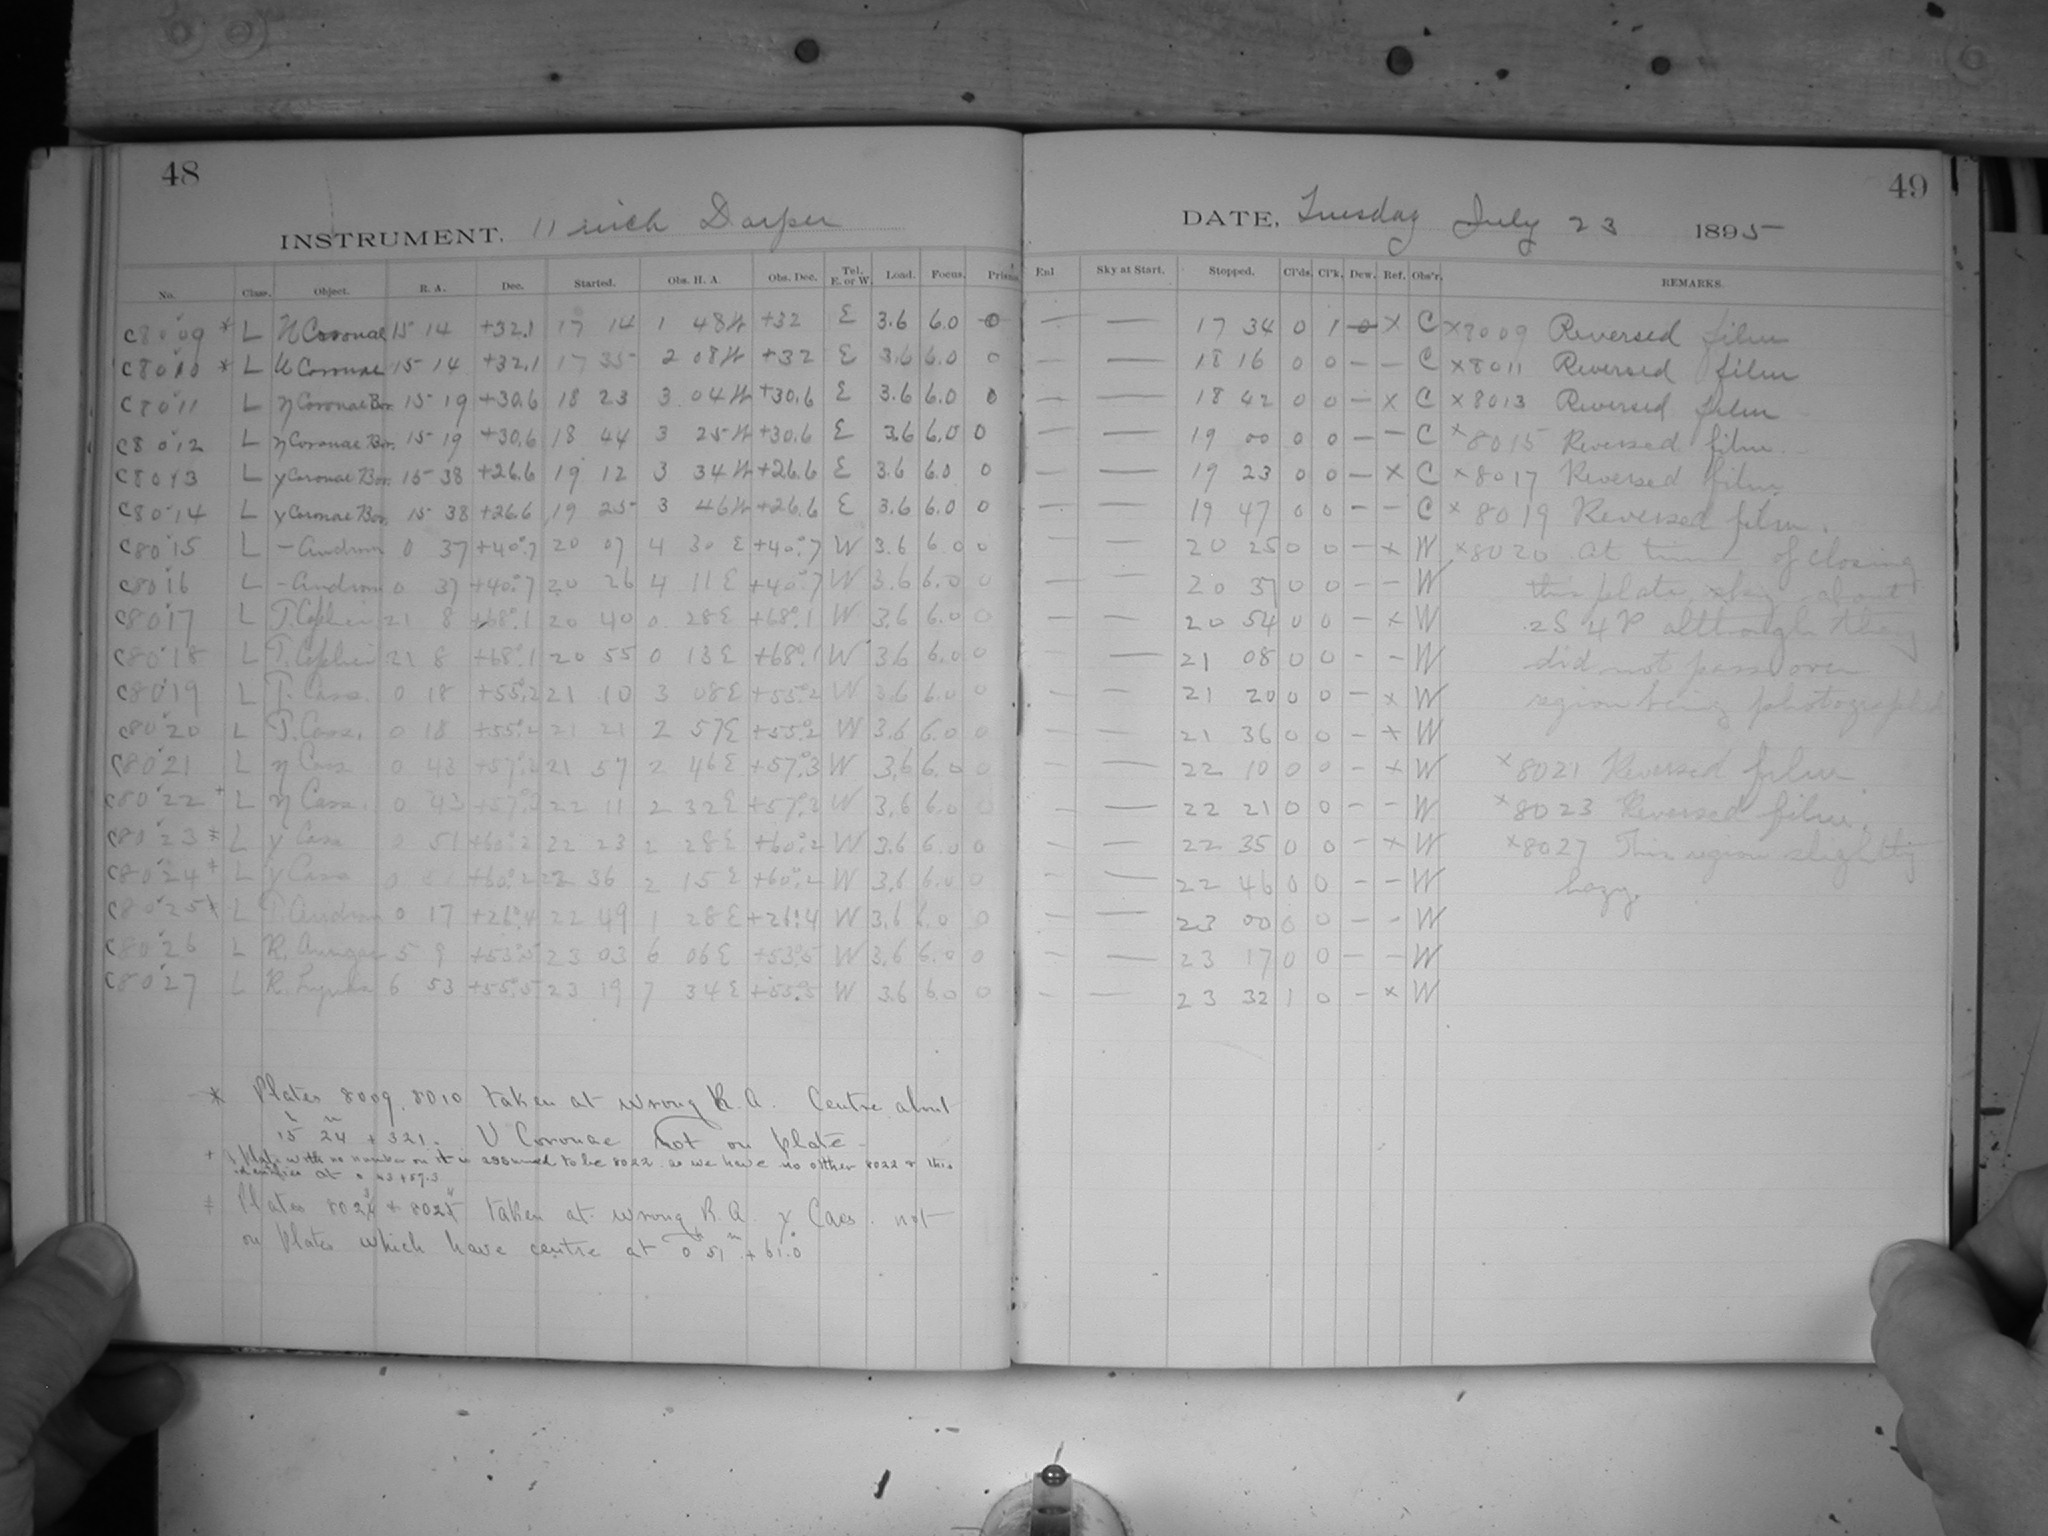 48
INSTRUMENT. 11 inch Draper
No. Class. Object. R. A. Dec. Started. Obs. H. A. Obs. Dec. Tel. E. or W. Load. Focus. Prisms
C8009 * L U Coronae 15 14 +32.1 17 14 1 48W +32 E 3.6 6.0 0
C8010 * L U Coronae 15 14 +32.1 17 35 2 08W +32 E 3.6 6.0 0
C8011 L η Coronae Bor. 15 19 +30.6 18 23 3 04W +30.6 E 3.6 6.0 0
C8012 L η Coronae Bor. 15 19 +30.6 18 44 3 25W +30.6 E 3.6 6.0 0
C8013 L γ Coronae Bor. 15 38 +26.6 19 12 3 34W +26.6 E 3.6 6.0 0
C8014 L γ Coronae Bor. 15 38 +26.6 19 25 3 46W +26.6 E 3.6 6.0 0
C8015 L - Androm 0 37 +40°.7 20 07 4 30 E +40°.7 W 3.6 6.0 0
C8016 L - Androm 0 37 +40°.7 20 26 4 11E +40°.7 W 3.6 6.0 0
C8017 L T. Cephei 21 8 +68°.1 20 40 0 28E +68°.1 W 3.6 6.0 0
C8018 L T. Cephei 21 8 +68°.1 20 55 0 13E +68°.1 W 3.6 6.0 0
C8019 L T. Cass. 0 18 +55°.2 21 10 3 08E +55°.2 W 3.6 6.0 0
C8020 L T. Cass. 0 18 +55°.2 21 21 2 57E +55°.2 W 3.6 6.0 0
C8021 L η Cass 0 43 +57°.2 21 57 2 46E +57°.3 W 3.6 6.0 0
C8022 + L η Cass. 0 43 22 11 2 32E +57°.2 W 3.6 6.0 0
C8023 ‡ L γ Cass 0 51 +60°.2 22 23 2 28E +60°.2 W 3.6 6.0 0
C8024 ‡ L γ Cass 0 +60°.2 22 36 2 15E +60°.2 W 3.6 6.0 0
C8025 L T. Androm 0 17 +26°.4 22 49 1 28E +26°.4 W 3.6 6.0 0
C8026 L R. Aurigae 5 9 +53°.5 23 03 6 06E +53°.5 W 3.6 6.0 0
C8027 L R. Lyncis 6 53 +55°.5 23 19 7 34E +55°.5 W 3.6 6.0 0
* Plates 8009, 8010 taken at wrong R.A. Centre about
15h 24m + 32.1. U Coronae not on plate -
+ A plate with no number on it is assumed to be 8022 as we have no other 8022 & this
identifies at 0 43 +57.3
‡ Plates 8023 & 8024 taken at wrong R.A. γ Cass. not
on plates which have centre at 0h 51m + 61.°0
49
DATE, Tuesday July 23 1895
Enl Sky at Start. Stopped. Cl'ds. Cl'k. Dew. Ref. Obs'r. REMARKS.
— — 17 34 0 1 0 x C x8009 Reversed film
— — 18 16 0 0 — — C x8011 Reversed film
— — 18 42 0 0 — x C x8013 Reversed film
— — 19 00 0 0 — — C x8015 Reversed film.
— — 19 23 0 0 — x C x8017 Reversed film
— — 19 47 0 0 — — C x8019 Reversed film.
— — 20 25 0 0 — x W x8020 At time of closing
— — 20 37 0 0 — — W this plate, sky about
— — 20 54 0 0 — x W 2S 4P although they
— — 21 08 0 0 — — W did not pass over
— — 21 20 0 0 — x W region being photographed
— — 21 36 0 0 — x W
— — 22 10 0 0 — x W x8021 Reversed film
— — 22 21 0 0 — — W x8023 Reversed film.
— — 22 35 0 0 — x W x8027 This region slightly
— — 22 46 0 0 — — W hazy.
— — 23 00 0 0 — — W
— — 23 17 0 0 — — W
— — 23 32 1 0 — x W